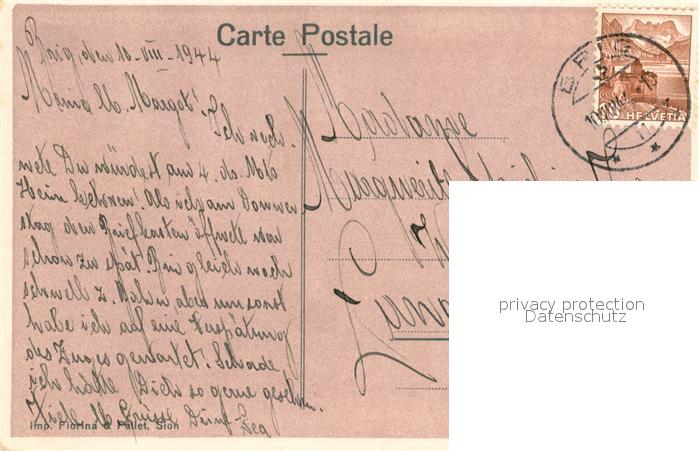 Carte Postale
Brig, den 10. VIII. 1944
Meine lb. Margot! Ich rech-
nete Du würdest am 4. ds. Mts
heim kehren! Als ich am Donners
tag den Briefkasten öffnete war
schon zu spät. Bin gleich noch
schnell z. Bahn, aber umsonst
habe ich auf eine Verspätung
des Zuges gewartet! Schade
ich hätte Dich so gerne gesehen.
Viele lb Grüsse Deine
Imp. Fiorina & Pellet, Sion
Madame
BRIG
HELVETIA
privacy protection
Datenschutz